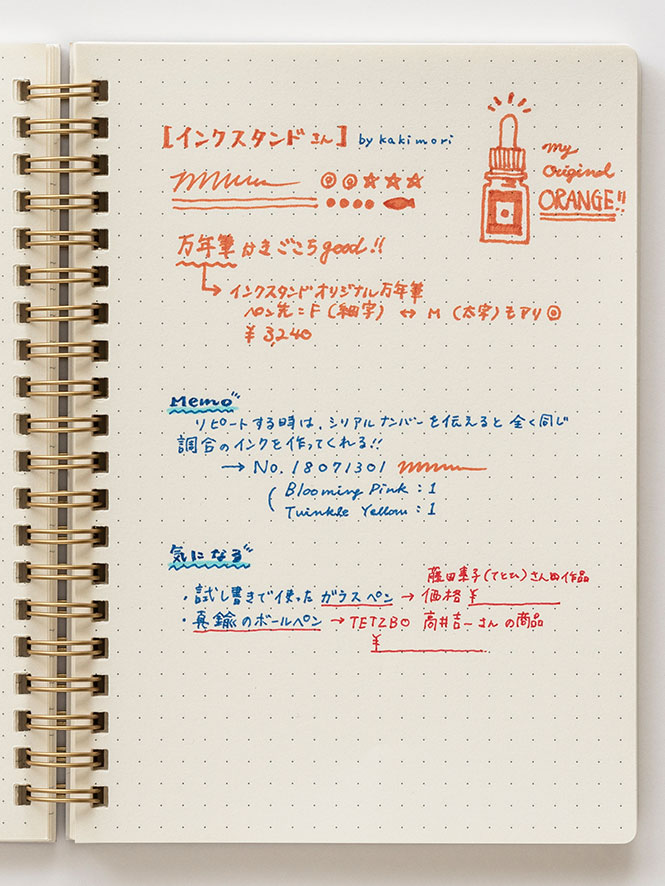 【インクスタンドさん】 by kakimori
My
Original
ORANGE!!
万年筆 かきごこち good!!
インクスタンドオリジナル万年筆
ペン先 = F (細字) ↔ M (太字) もアリ◎
¥ 3,240
Memo
リピートする時は、シリアルナンバーを伝えると 全く同じ
調合のインクを作ってくれる!!
→ No. 18071301
( Blooming Pink : 1
Twinkle Yellow : 1
気になる
藤田 子(てとひ)さんの作品
・試し書きで使った ガラスペン → 価格 ¥
・真鍮のボールペン → TETZBO 高井吉一さんの商品
¥